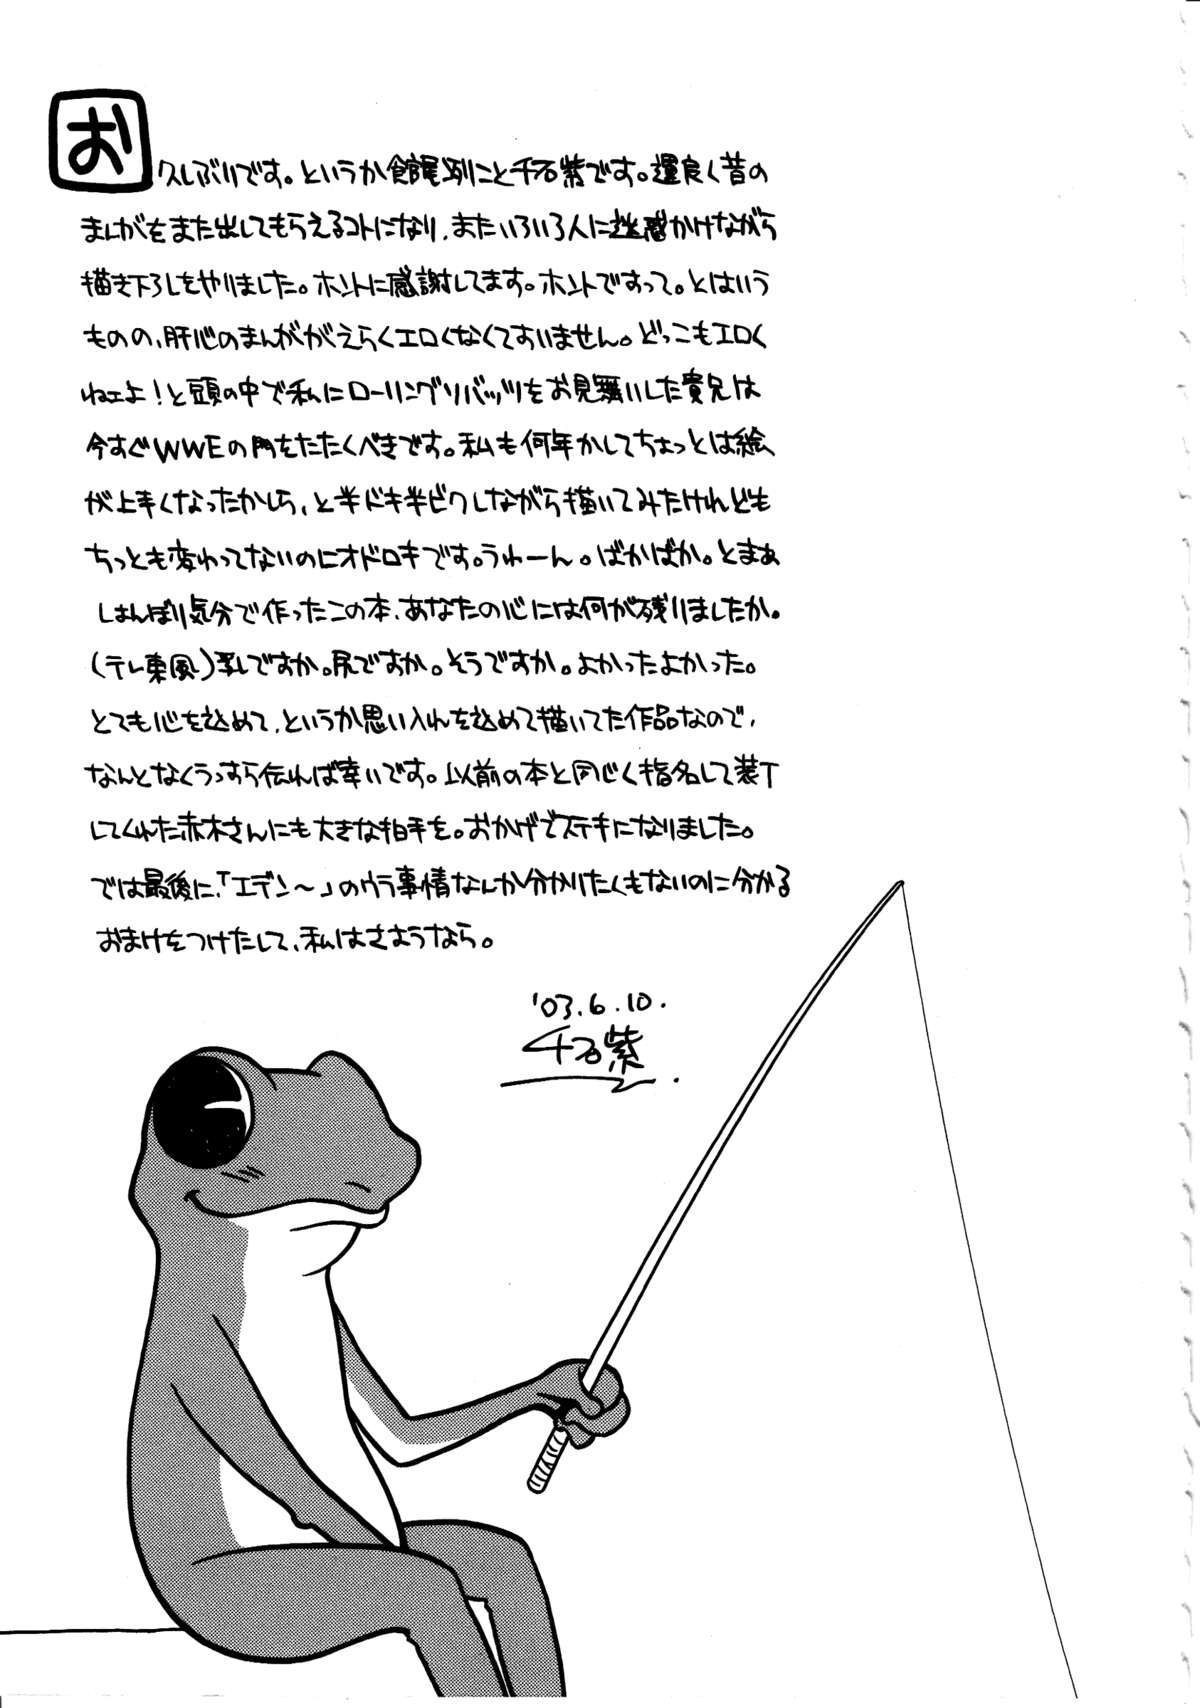 お久しぶりです。というか館尾冽こと千石紫です。運良く昔の
まんがをまた出してもらえるコトになり、またいろいろ人に迷惑かけながら
描き下ろしをやりました。ホントに感謝してます。ホントですって。とはいう
ものの、肝心のまんががえらくエロくなくてすいません。どっこもエロく
ねェよ!と頭の中で私にローリングソバッツをお見舞いした貴兄は
今すぐWWEの門をたたくべきです。私も何年かしてちょっとは絵
が上手くなったかしら、と半ドキ半ビクしながら描いてみたけれども
ちっとも変わってないのにオドロキです。うわーん。ばかばか。とまぁ
しょんぼり気分で作ったこの本、あなたの心には何が残りましたか。
(テレ東風)乳ですか。尻ですか。そうですか。よかったよかった。
とても心を込めて、というか思い入れを込めて描いてた作品なので、
なんとなくうっすら伝われば幸いです。以前の本と同じく指名して装丁
してくれた赤木さんにも大きな拍手を。おかげでステキになりました。
では最後に、「エデン～」のウラ事情なんか分かりたくもないのに分かる
おまけをつけたして、私はさようなら。
'03.6.10.
千石紫